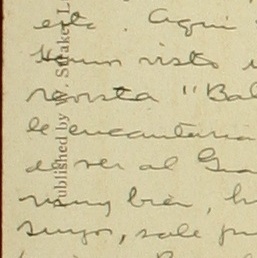 esta. Aquí
Hemos visto
revista "Bal
le encantaría
de ver al Gra
muy bien, h
suyos, sale
Published by W. Straker, L